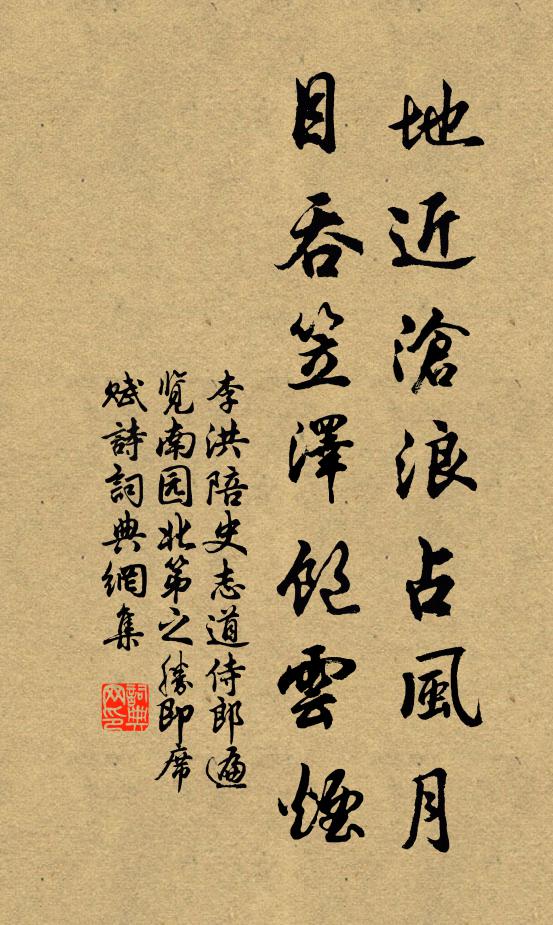 地近滄浪占風月
目吞笠澤飽雲煙
李洪陪史志道侍郎遍
览南园北第之勝即席
赋詩詞典網集
詞典網印